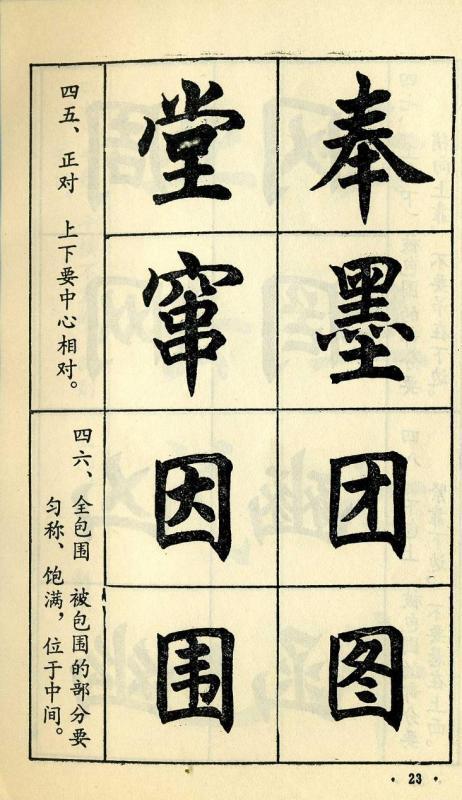 奉墨团图
堂窜因围
四五、正对 上下要中心相对。
四六、全包围 被包围的部分要
匀称、饱满，位于中间。
· 23 ·